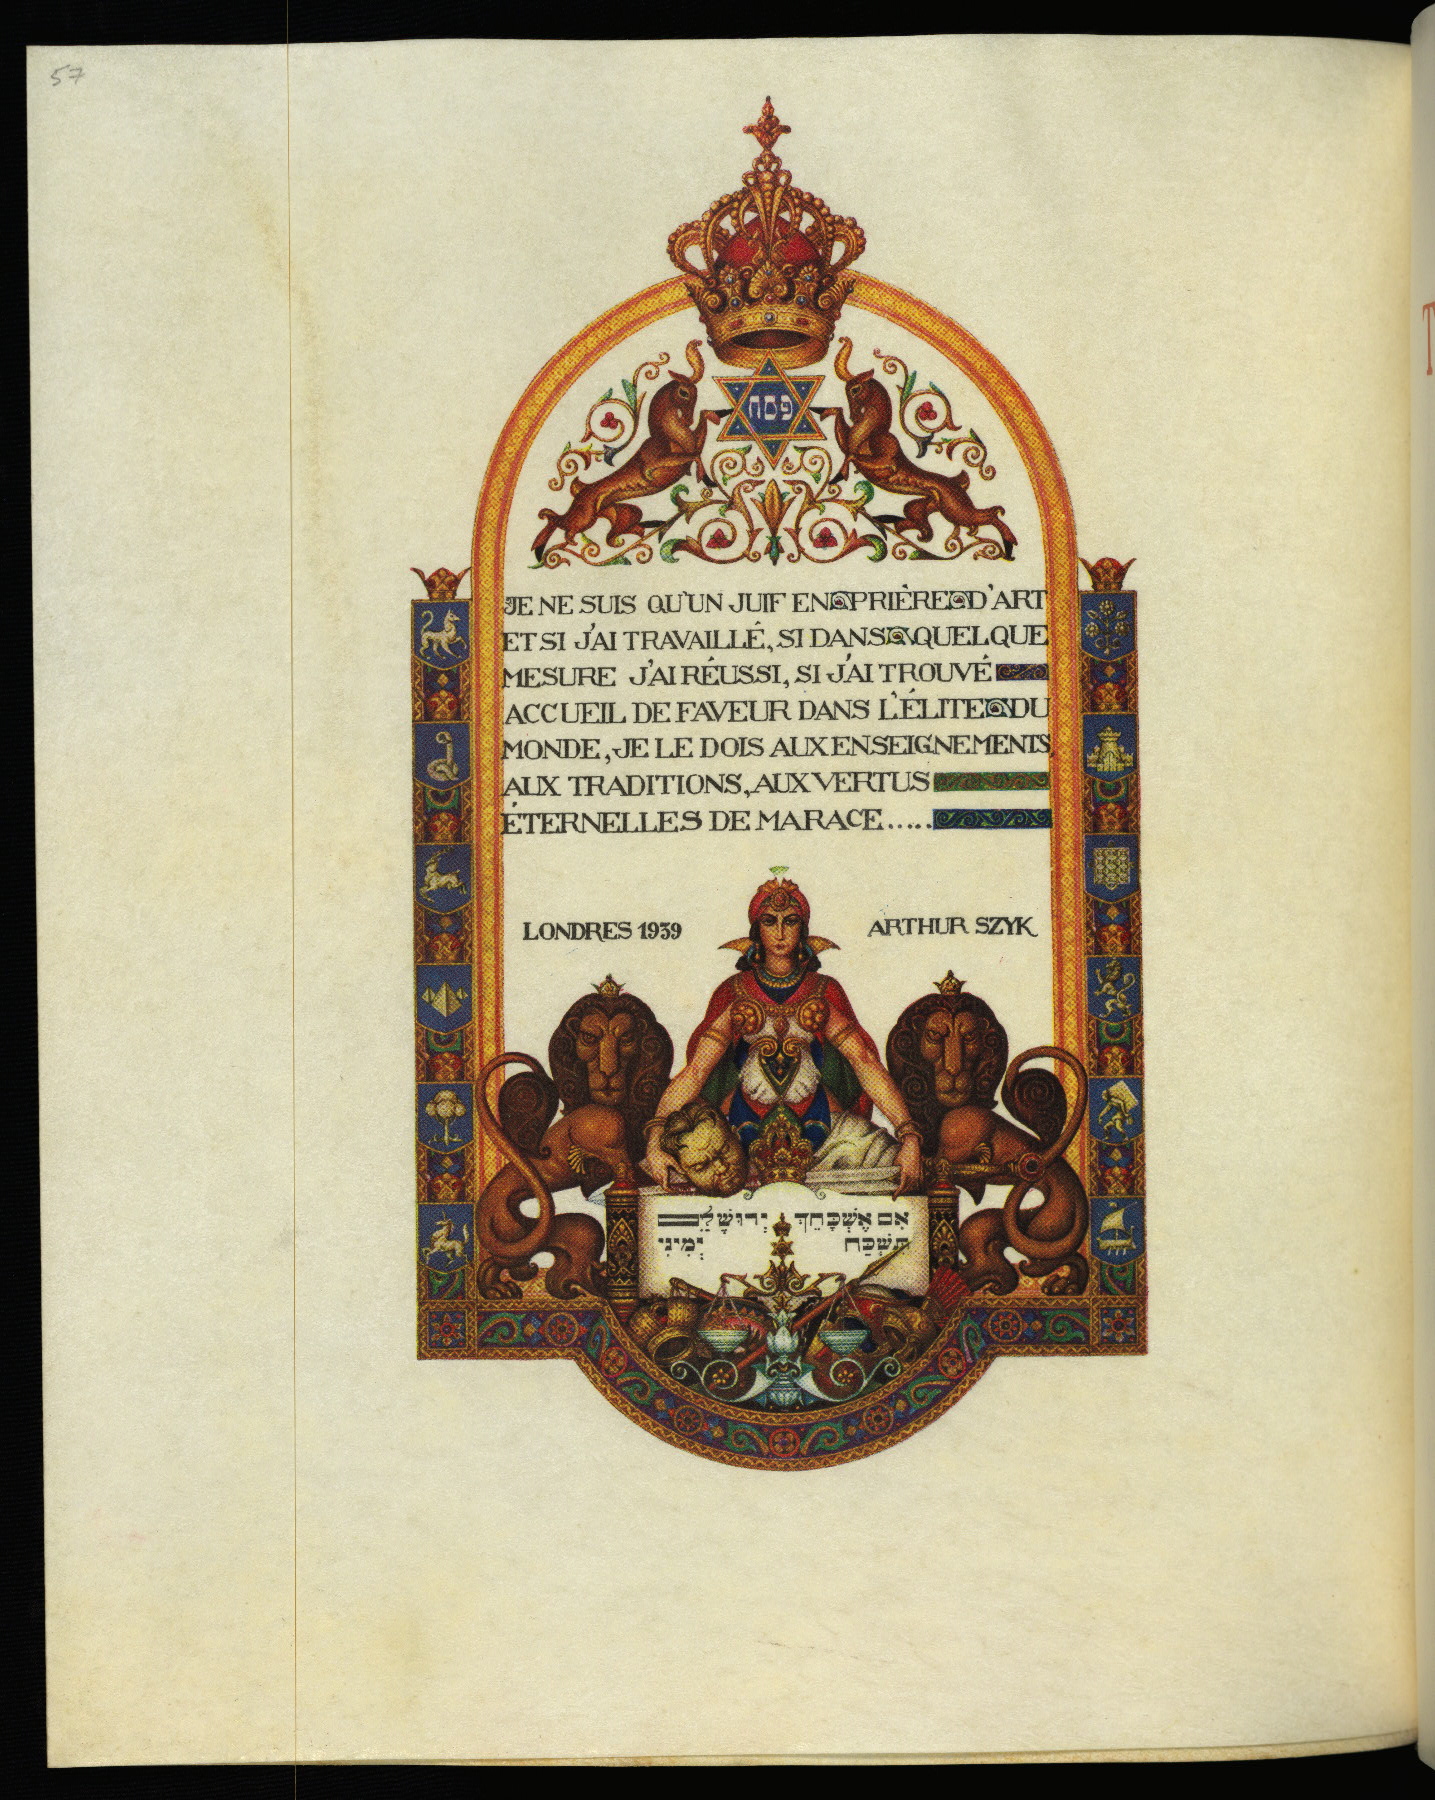 57
פסח
JE NE SUIS QU'UN JUIF EN PRIÈRE D'ART
ET SI J'AI TRAVAILLÉ, SI DANS QUELQUE
MESURE J'AI RÉUSSI, SI J'AI TROUVÉ
ACCUEIL DE FAVEUR DANS L'ÉLITE DU
MONDE, JE LE DOIS AUX ENSEIGNEMENTS,
AUX TRADITIONS, AUX VERTUS
ÉTERNELLES DE MA RACE.....
LONDRES 1939 ARTHUR SZYK
אִם אֶשְׁכָּחֵךְ יְרוּשָׁלַיִם
תִּשְׁכַּח יְמִינִי